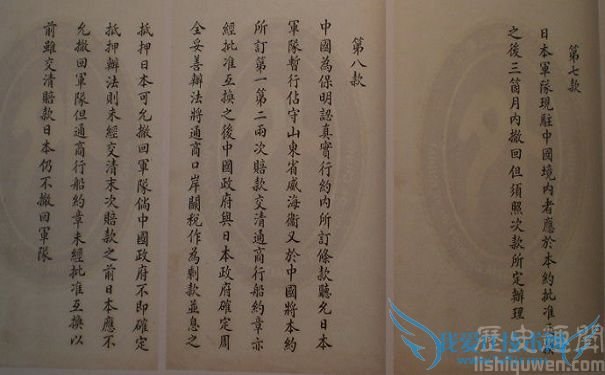 第七款
日本軍隊現駐中國境內者應於本約批准互換
之後三箇月內撤回但須照次款所定辦理
第八款
中國為保明認真實行約內所訂條款聽允日本
軍隊暫行佔守山東省威海衛又於中國將本約
所訂第一第二兩次賠款交清通商行船約章亦
經批准互換之後中國政府與日本政府確定周
全妥善辦法將通商口岸關稅作為剩款並息之
抵押日本可允撤回軍隊倘中國政府不即確定
抵押辦法則未經交清末次賠款之前日本應不
允撤回軍隊但通商行船約章未經批准互換以
前雖交清賠款日本仍不撤回軍隊
歷史趣聞
lishiquwen.com